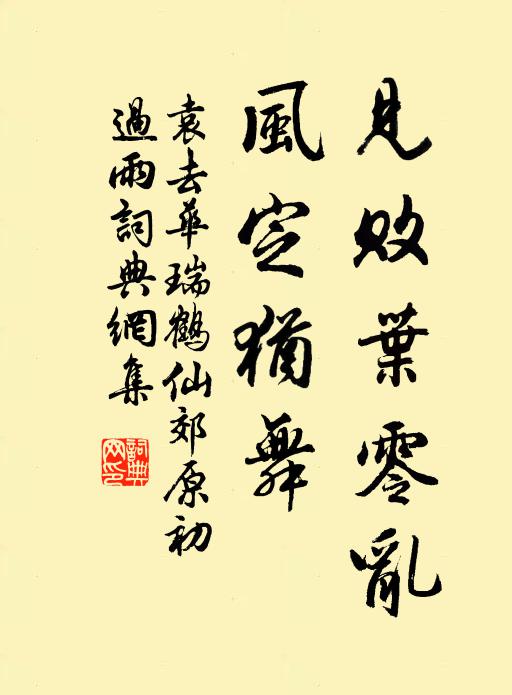 見敗葉零亂
風定猶舞
袁去華瑞鶴仙郊原初
過雨詞典網集
詞典
网印